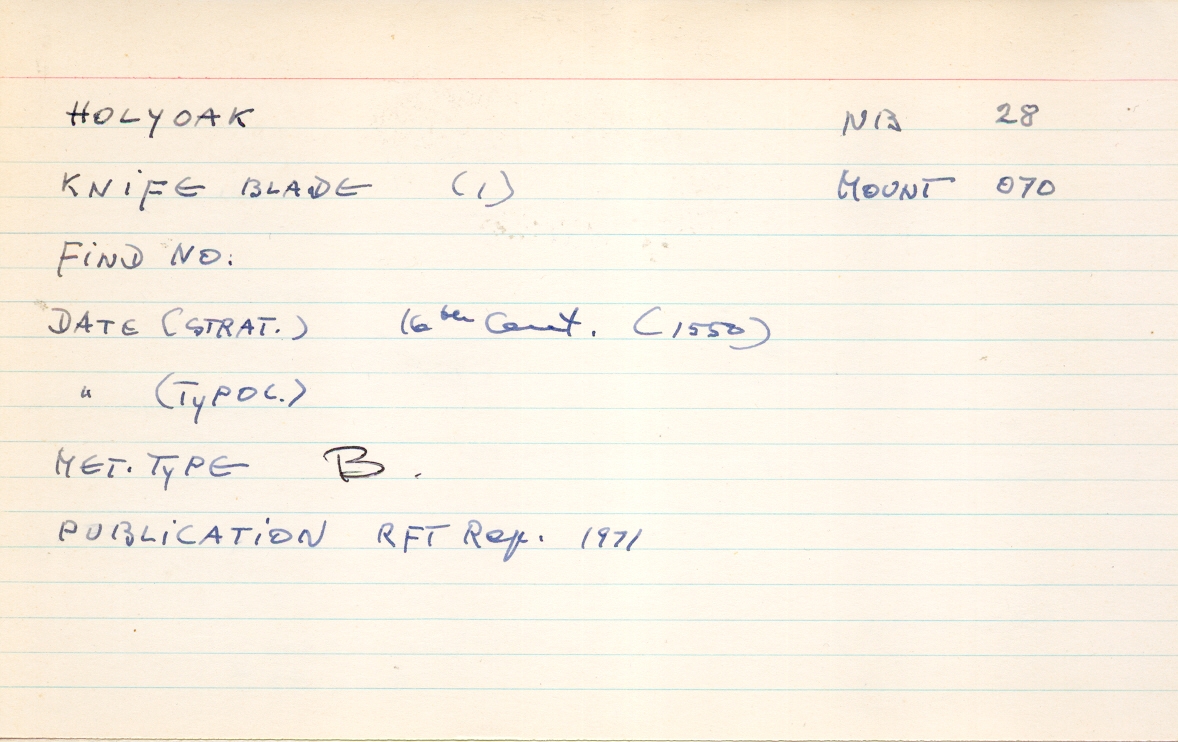 HOLYOAK NB 28
KNIFE BLADE (1) MOUNT 070
FIND NO:
DATE (STRAT.) 16th Cent. (1550)
" (TYPOL.)
MET. TYPE B.
PUBLICATION RFT Rep. 1971